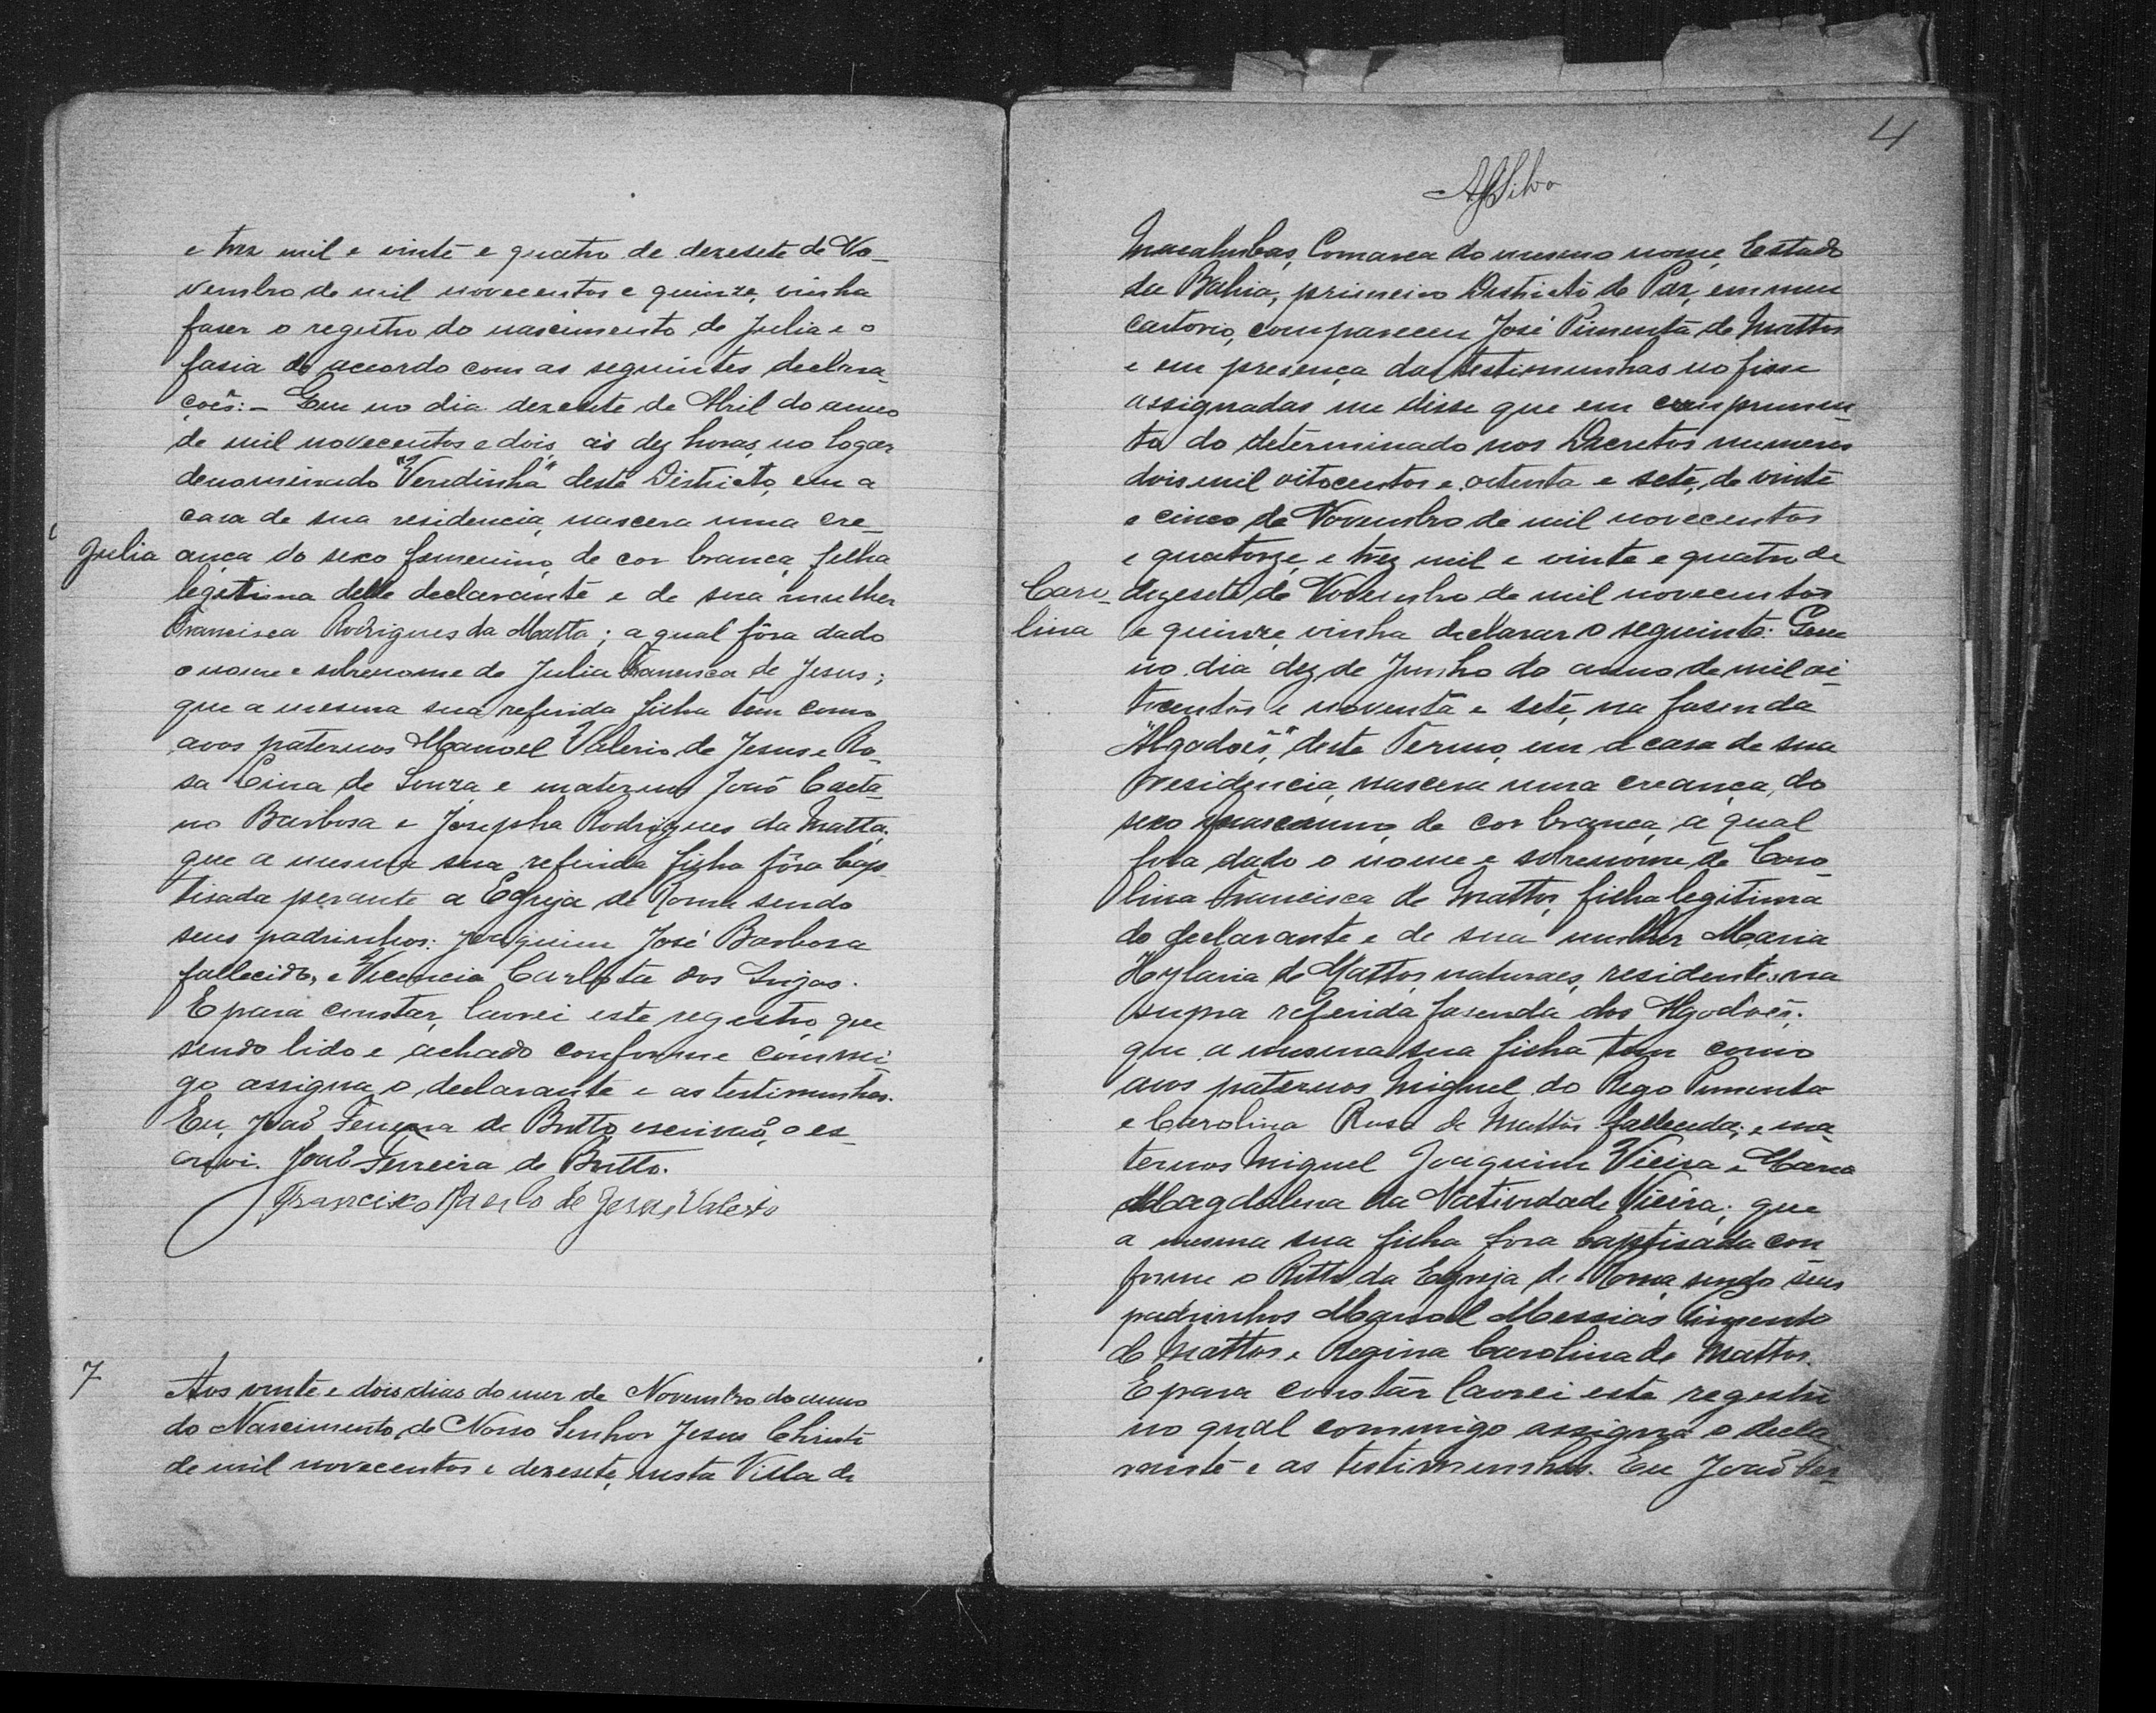 e trez mil e vinte e quatro de dezesete de No-
vembro de mil novecentos e quinze, vinha
faser o registro do nascimento de Julia e o
fasia de accordo com as seguintes declara-
çoẽs:- Que no dia dezesete de Abril do anno
de mil novecentos e dois, ás dez horas, no logar
denominado "Veredinha" deste Districto, em a
casa de sua residencia, nascera uma cre-
Julia
ança do sexo femenino, de cor branca, filha
legitima delle declarante e de sua mulher
Francisca Rodrigues da Matta; a qual fôra dado
o nome e sobrenome de Julia Francisca de Jesus;
que a mesma sua referida filha tem como
avos paternos Manoel Valerio de Jesus e Ro-
sa Lina de Souza e maternos João Caeta-
no Barbosa e Josepha Rodrigues da Matta;
que a mesma sua referida filha fôra bap-
tisada perante a Egreja de Roma sendo
seus padrinhos: Joaquim José Barbosa
fallecido, e Vicencia Carlota dos Anjos.
E para constar, lavrei este registro que
sendo lido e achado conforme commi-
go assigna o declarante e as testimunhas.
Eu, João Ferreira de Britto, escrivão, o es-
crevi. João Ferreira de Britto.
Francisco Paulo de Jesus Valerio
7
Aos vinte e dois dias do mez de Novembro do anno
do Nascimento de Nosso Senhor Jesus Christo
de mil novecentos e dezesete, nesta Villa de
4
Macahubas, Comarca do mesmo nome, Estado
da Bahia, primeiro Districto de Paz, em meu
cartorio, compareceu José Pimenta de Mattos
e em presença das testimunhas no fim
assignadas me disse que em cumprimen-
to do determinado nos Decretos numeros
dois mil oitocentos e oitenta e sete, de vinte
e cinco de Novembro de mil novecentos
e quatorze, e trez mil e vinte e quatro de
Caro-
dezesete de Novembro de mil novecentos
lina
e quinze, vinha declarar o seguinte: Que
no dia dez de Junho do anno de mil oi-
tocentos e noventa e sete, na fasenda
"Algodoẽs," deste Termo, em a casa de sua
residencia, nascera uma creança, do
sexo femenino, de cor branca, a qual
fora dado o nome e sobrenome de Caro-
lina Francisca de Mattos, filha legitima
do declarante e de sua mulher Maria
Hylaria de Mattos, naturaes, residentes na
supra referida fasenda dos Algodoẽs;
que a mesma sua filha tem como
avos paternos Miguel do Rego Pimenta
e Carolina Rosa de Mattos fallecida; e ma-
ternos Miguel Joaquim Vieira e Maria
Magdalena da Natividade Vieira; que
a mesma sua filha fora baptisada con
forme o Ritto da Egreja de Roma, sendo seus
padrinhos Manoel Messias Pimenta
de Mattos e Regina Carolina de Mattos.
E para constar lavrei este registro
no qual commigo assigna o decla-
rante e as testimunhas. Eu João Fer-